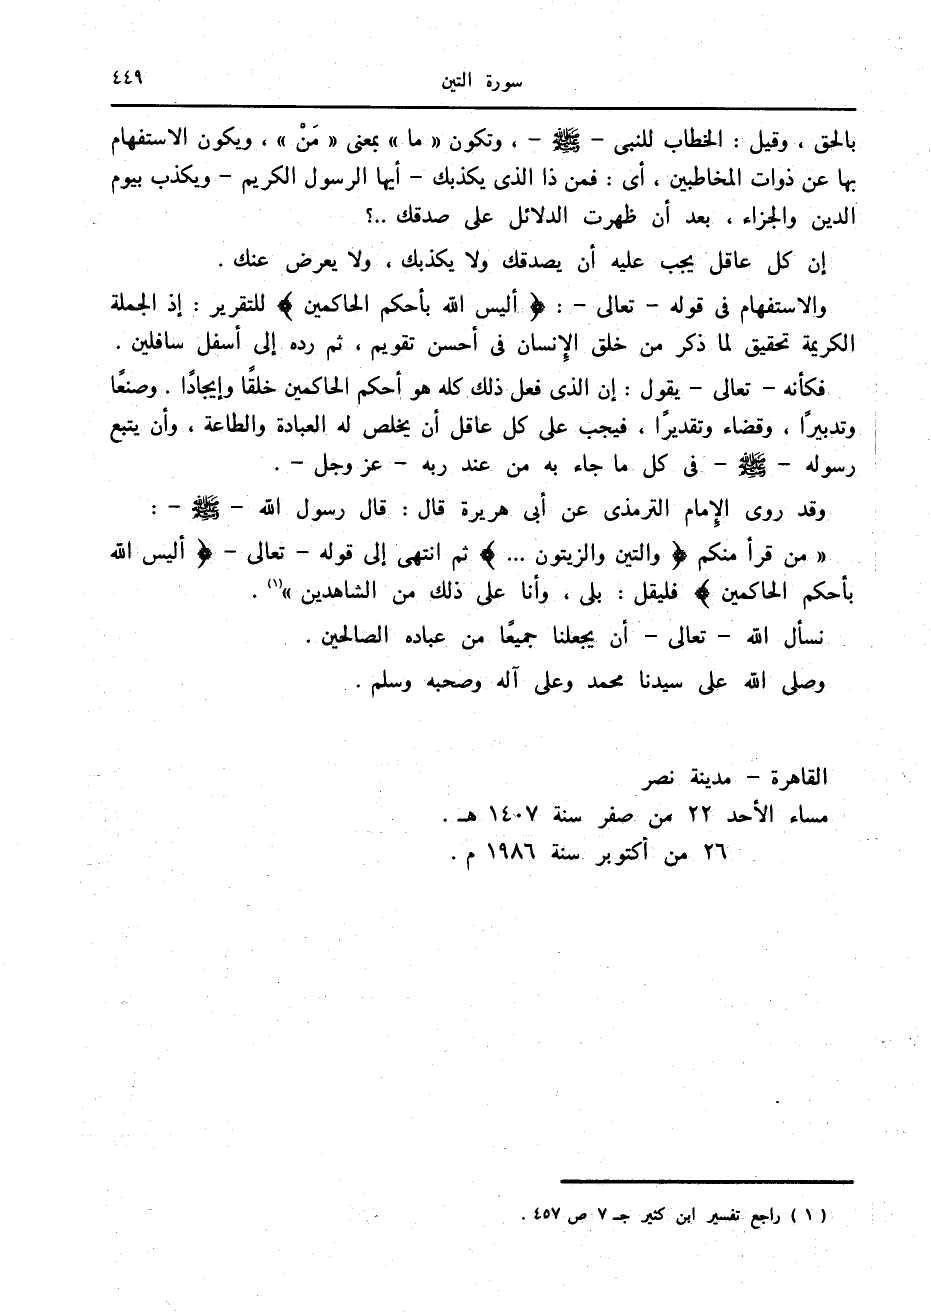 سورة التين ٤٤٩
بالحق ، وقيل : الخطاب للنبى – ﷺ – ، وتكون « ما » بمعنى « مَنْ » ، ويكون الاستفهام
بها عن ذوات المخاطبين ، أى : فمن ذا الذى يكذبك – أيها الرسول الكريم – ويكذب بيوم
الدين والجزاء ، بعد أن ظهرت الدلائل على صدقك ..؟
إن كل عاقل يجب عليه أن يصدقك ولا يكذبك ، ولا يعرض عنك .
والاستفهام فى قوله – تعالى – : ﴿ أليس الله بأحكم الحاكمين ﴾ للتقرير : إذ الجملة
الكريمة تحقيق لما ذكر من خلق الإنسان فى أحسن تقويم ، ثم رده إلى أسفل سافلين .
فكأنه – تعالى – يقول : إن الذى فعل ذلك كله هو أحكم الحاكمين خلقًا وإيجادًا . وصنعًا
وتدبيرًا ، وقضاء وتقديرًا ، فيجب على كل عاقل أن يخلص له العبادة والطاعة ، وأن يتبع
رسوله – ﷺ – فى كل ما جاء به من عند ربه – عز وجل – .
وقد روى الإمام الترمذى عن أبى هريرة قال : قال رسول الله – ﷺ – :
« من قرأ منكم ﴿ والتين والزيتون ... ﴾ ثم انتهى إلى قوله – تعالى – ﴿ أليس الله
بأحكم الحاكمين ﴾ فليقل : بلى ، وأنا على ذلك من الشاهدين »(١) .
نسأل الله – تعالى – أن يجعلنا جميعًا من عباده الصالحين .
وصلى الله على سيدنا محمد وعلى آله وصحبه وسلم .
القاهرة – مدينة نصر
مساء الأحد ٢٢ من صفر سنة ١٤٠٧ هـ .
٢٦ من أكتوبر سنة ١٩٨٦ م .
( ١ ) راجع تفسير ابن كثير جـ ٧ ص ٤٥٧ .